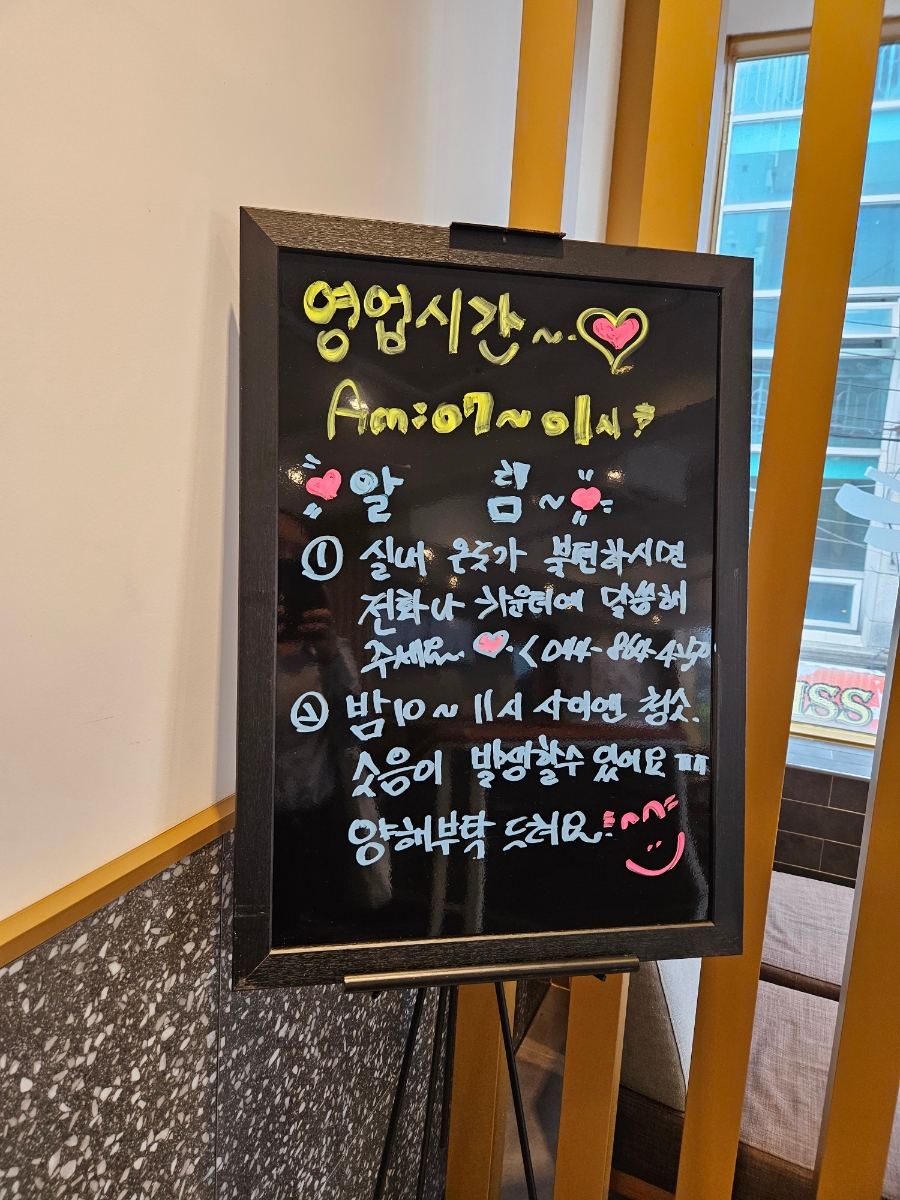 영업시간~.
Am:07~01시?
알 림~
① 실내 온도가 불편하시면
전화나 카운터에 말씀해
주세요~.
② 밤10~11시 사이엔 청소.
소음이 발생할수 있어요 ㅠㅠ
양해부탁 드려요~!!
ISS